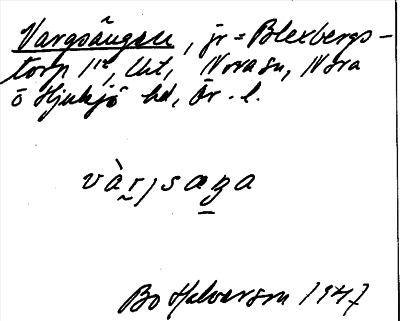 Vargsängen, jr = Blexbergs-
torp 1¹², Uts, Nora sn, Nora
o Hjulsjö hd, Ör. l.
vàr̰ɟsæŋa
Bo Halvarson 1947